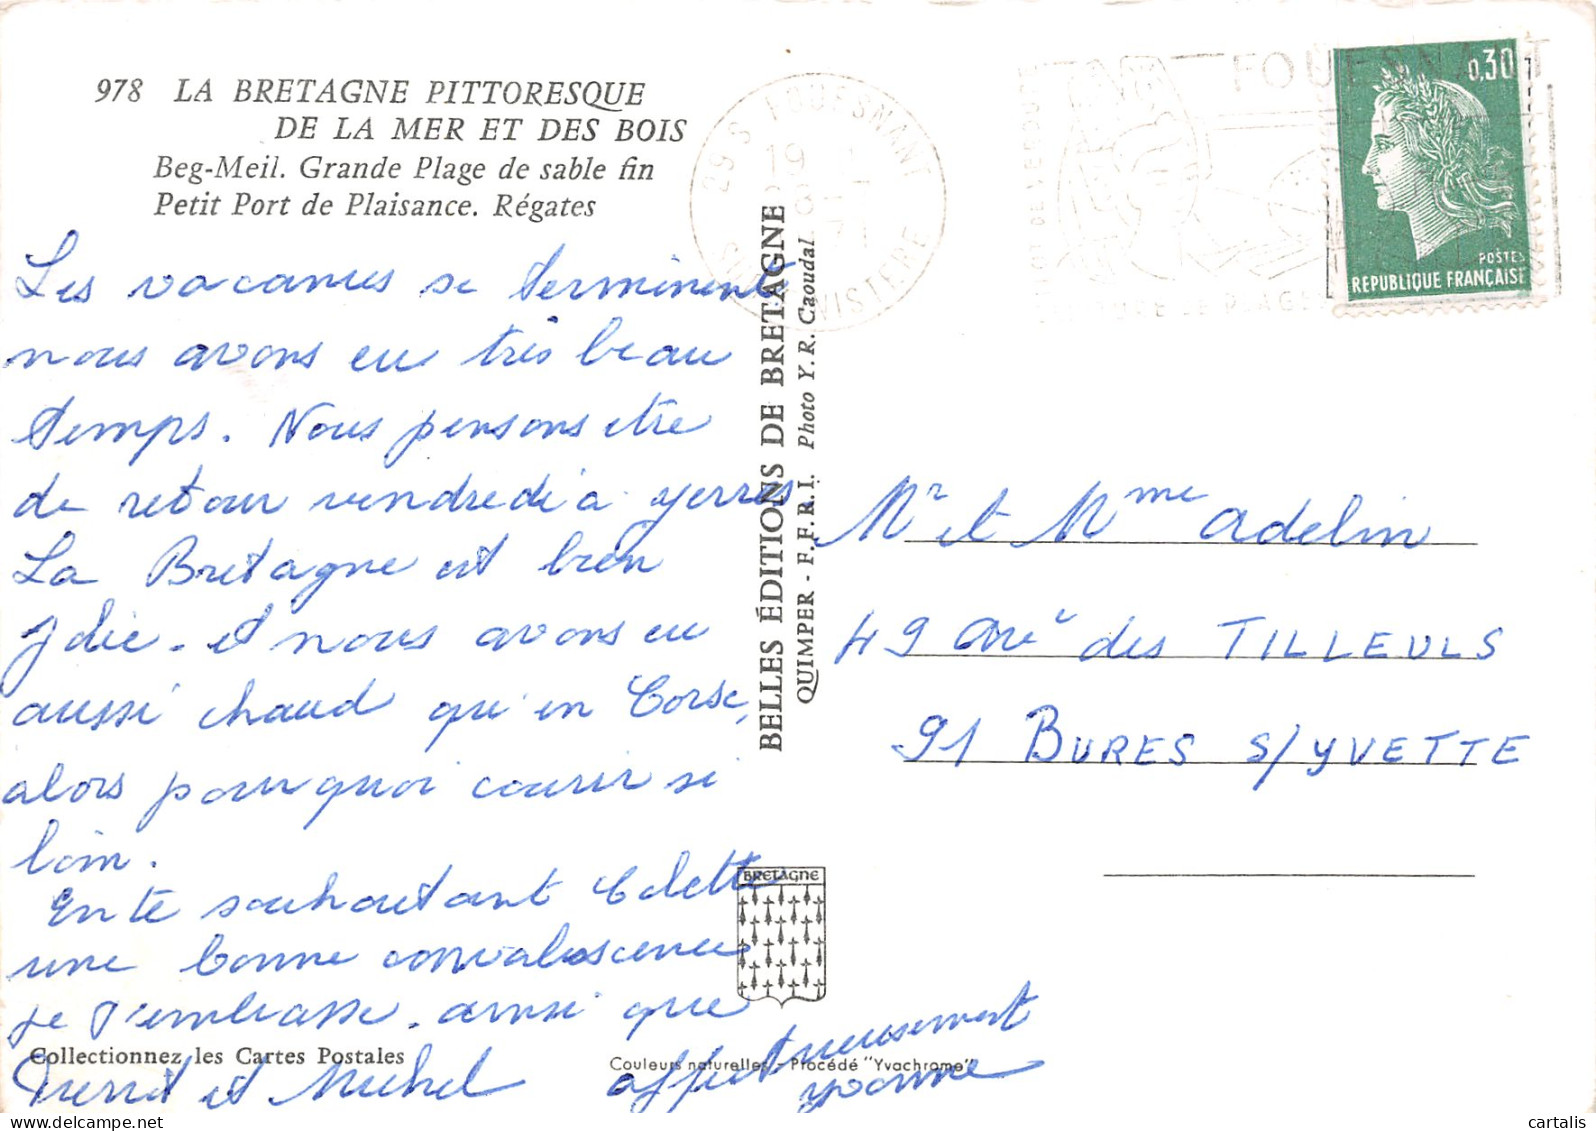 978 LA BRETAGNE PITTORESQUE
DE LA MER ET DES BOIS
Beg-Meil. Grande Plage de sable fin
Petit Port de Plaisance. Régates
Les vacances se terminent
nous avons eu très beau
temps. Nous pensons etre
de retour vendredi à yerres
La Bretagne est bien
jolie. et nous avons eu
aussi chaud qu'en Corse,
alors pourquoi courir si
loin.
En te souhaitant Colette
une bonne convalescence
je t'embrasse. ainsi que
et Michel affectueusement
yvonne
Collectionnez les Cartes Postales
Couleurs naturelles - Procédé "Yvachrome"
BELLES ÉDITIONS DE BRETAGNE
QUIMPER - F.F.R.I. Photo Y. R. Caoudal
BRETAGNE
29 S FOUESNANT
19
71
S FINISTERE
FOUESNANT
DE VERDURE
PLAGE
0,30
POSTES
REPUBLIQUE FRANÇAISE
Mr et Mme Adelin
49 Ave des TILLEULS
91 BURES S/YVETTE
cartalis